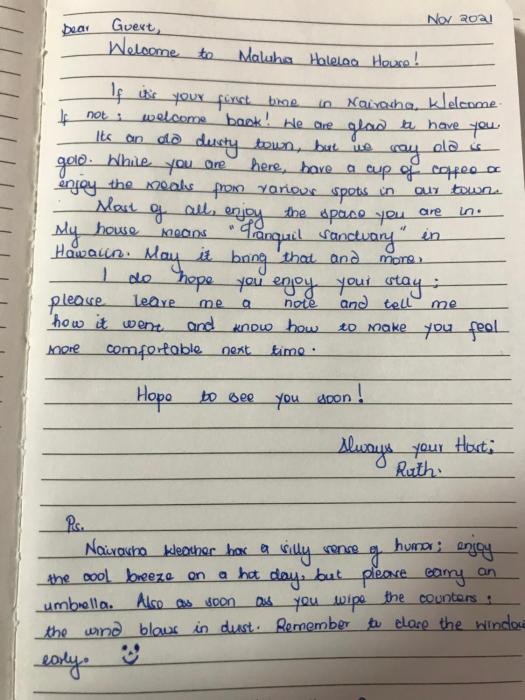 Nov 2021
Dear Guest,
Welcome to Maluhia Halelaa House!
If it's your first time in Naivasha, Welcome.
If not; welcome back! We are glad to have you.
Its an old dusty town, but we say old is
gold. While you are here, have a cup of coffee or
enjoy the meals from various spots in our town.
Most of all, enjoy the space you are in.
My house means "Tranquil Sanctuary" in
Hawaiin. May it bring that and more.
I do hope you enjoy your stay;
please leave me a note and tell me
how it went and know how to make you feel
more comfortable next time.
Hope to see you soon!
Always your Host;
Ruth.
Ps.
Naivasha Weather has a silly sense of humor; enjoy
the cool breeze on a hot day, but please carry an
umbrella. Also as soon as you wipe the counters;
the wind blows in dust. Remember to close the window
early.